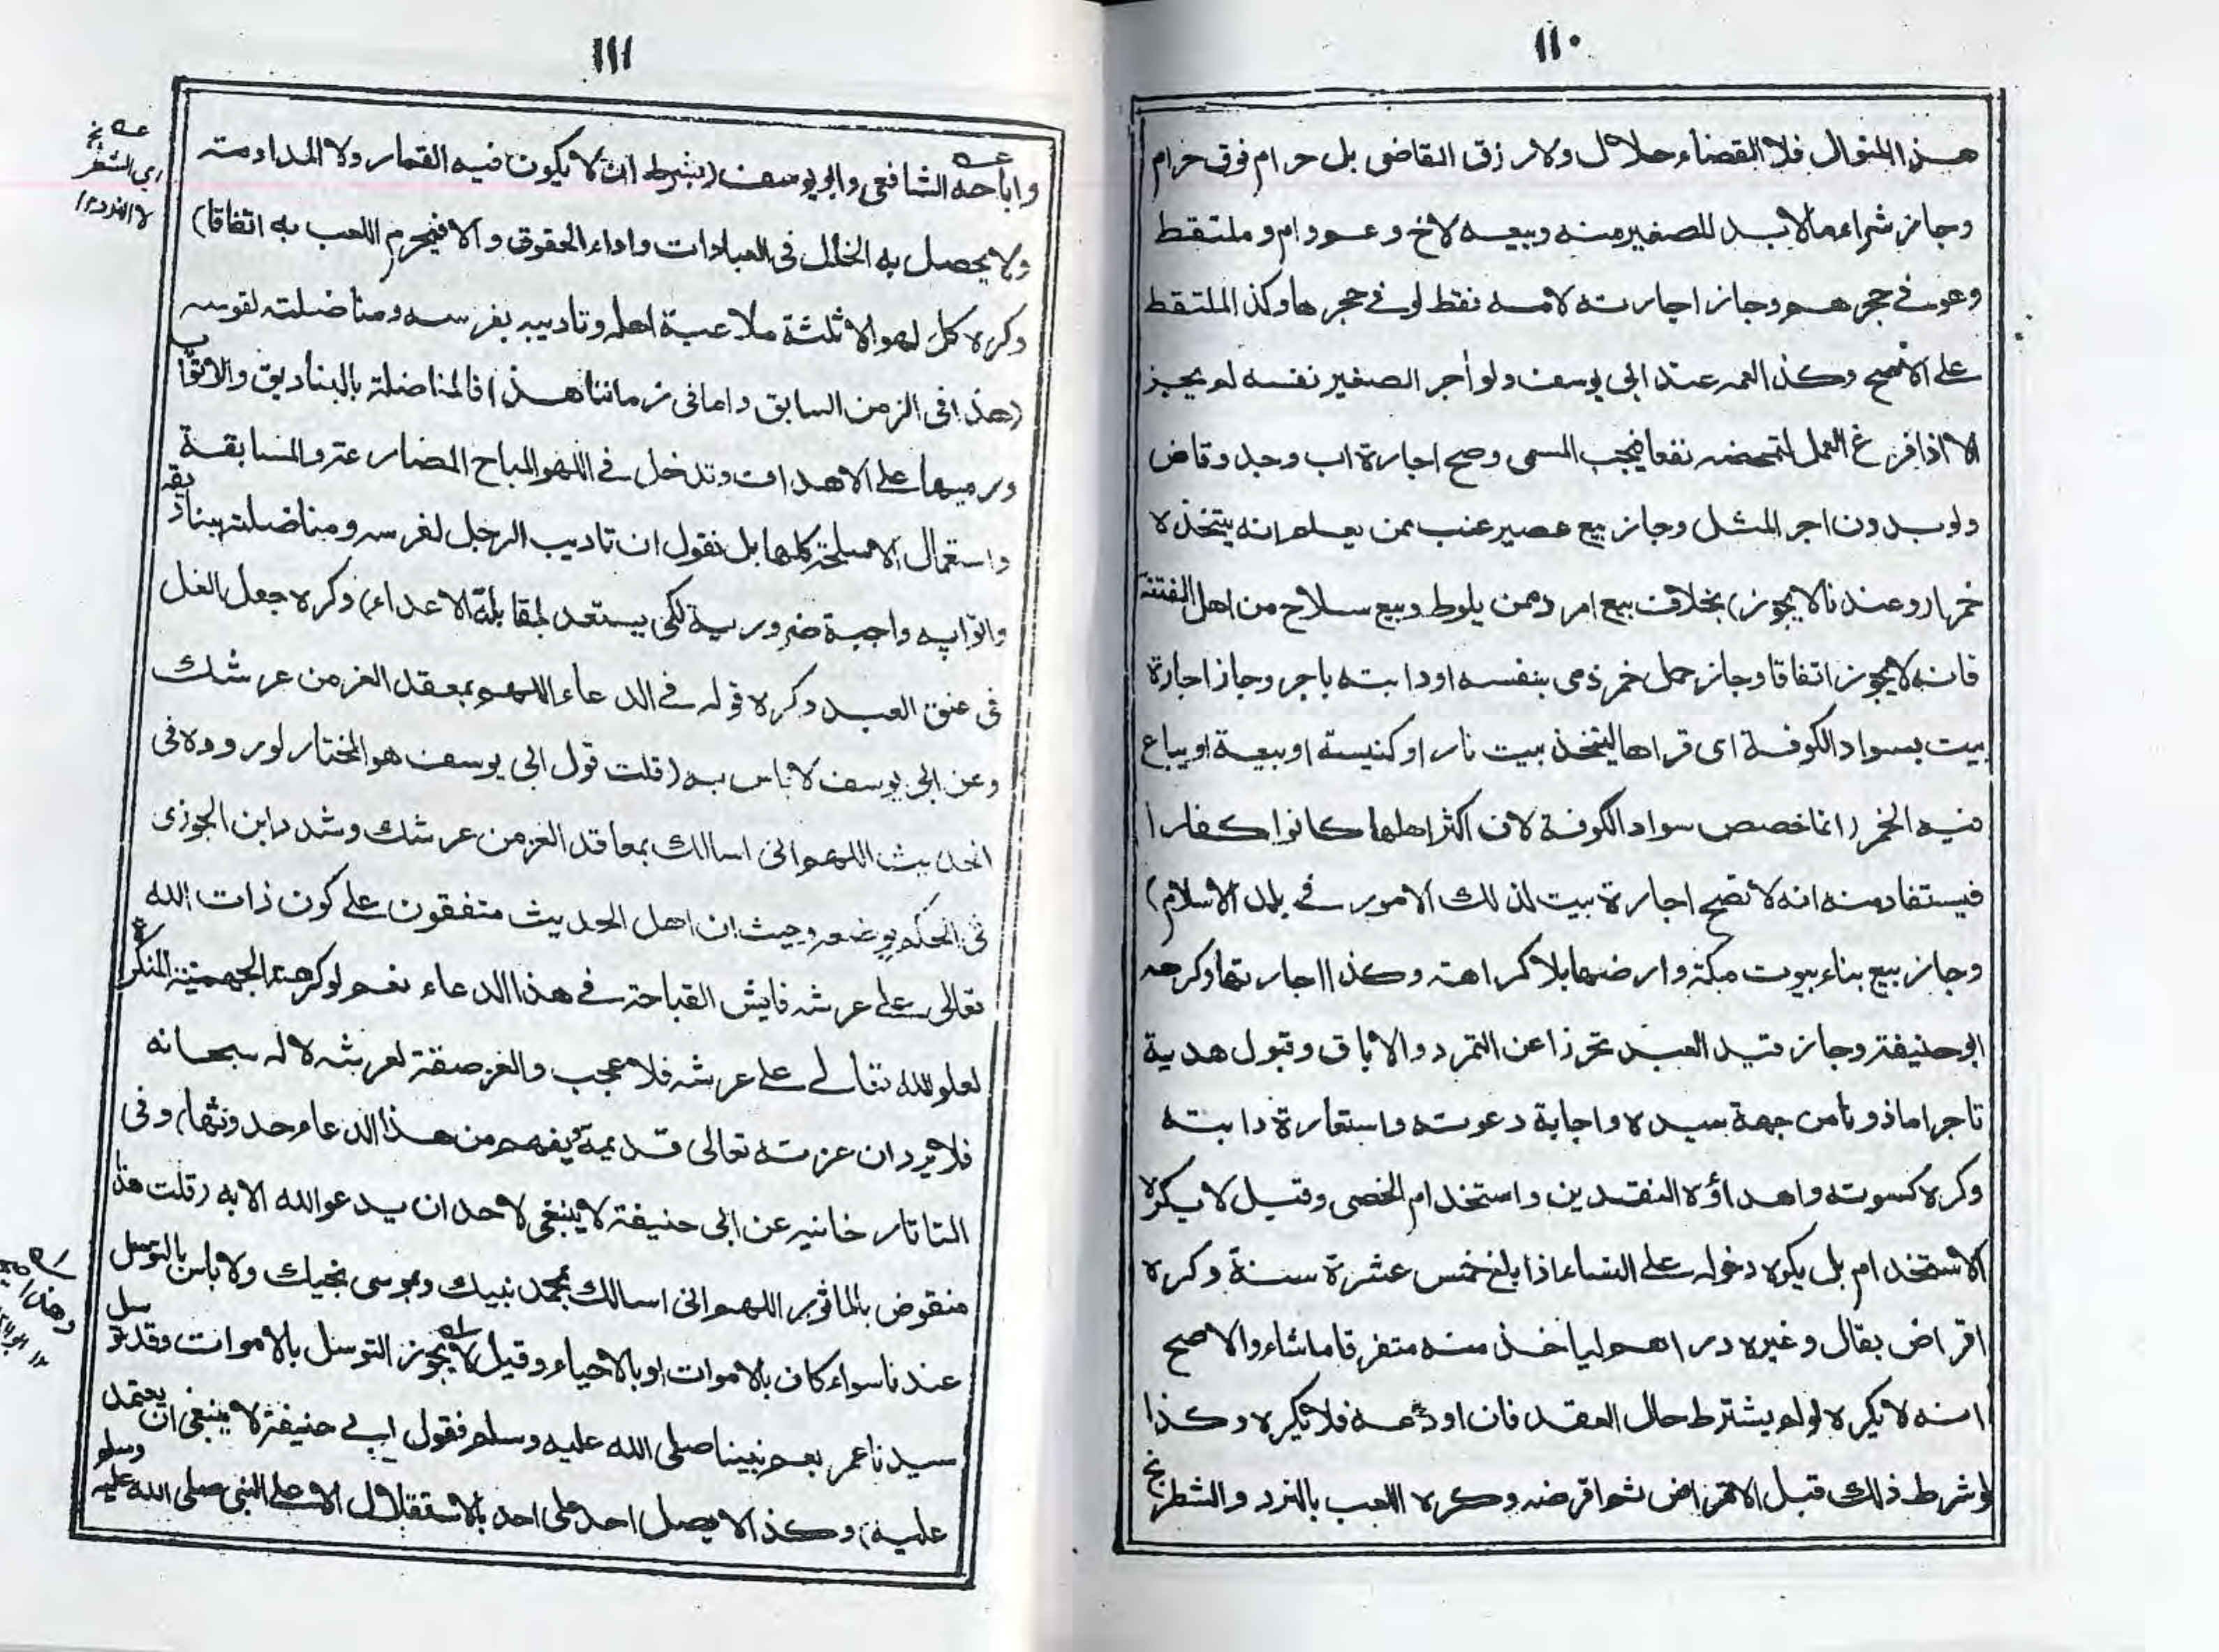 ١١٠
هذا المنوال فلا القضاء حلال ولا رزق القاضى بل حرام فوق حرام
وجاز شراء مالابد للصغير منه وبيعه لاخ وعم وام وملتقط
وهو فى حجرهم وجاز اجارته لامه فقط لو فى حجرها وكذا الملتقط
على الاصح وكذا لعمه عند ابى يوسف ولو اٰجر الصغير نفسه لم يجز
الا اذا فرغ العمل لتمحضه نفعا فيجب المسمى وصح اجارة اب وجد وقاض
ولو بدون اجر المثل وجاز بيع عصير عنب ممن يعلم انه يتخذه
خمرا (وعندنا لا يجوز) بخلاف بيع امرد ممن يلوط وبيع سلاح من اهل الفتنة
فانه لا يجوز اتفاقا وجاز حمل خمر ذمى بنفسه او دابته باجر وجاز اجارة
بيت بسواد الكوفة اى قراها ليتخذ بيت نار او كنيسة او بيعة او يباع
فيه الخمر (انما خصص سواد الكوفة لان اكثر اهلها كانوا كفارا
فيستفاد منه انه لا تصح اجارة بيت لذلك الامور فى بلد الاسلام)
وجاز بيع بناء بيوت مكة وارضها بلا كراهة وكذا اجارتها وكرهه
ابو حنيفة وجاز قيد العبد تحرزا عن التمرد والاباق وقبول هدية
تاجرا ماذونا من جهة سيده واجابة دعوته واستعارة دابته
وكره كسوته واهداؤه النقدين واستخدام الخصى وقيل لا يكره
الاستخدام بل يكره دخوله على النساء اذا بلغ خمس عشرة سنة وكره
اقراض بقال وغيره دراهم لياخذ منه متفرقا ماشاء والاصح
انه لا يكره لو لم يشترط حال العقد فان اودعه فلا يكره وكذا
لو شرط ذلك قبل الاقراض ثم اقرضه وكره اللعب بالنرد والشطرنج
١١١
واباحه الشافعى وابو يوسف (بشرط ان لا يكون فيه القمار ولا المداومة
ولا يحصل به الخلل فى العبادات واداء الحقوق والا فيحرم اللعب به اتفاقا)
وكره كل لهو الا ثلثة ملاعبة اهله وتاديبه بفرسه ومناضلته لقوسه
(هذا فى الزمن السابق واما فى زماننا هذا) فالمناضلة بالبناديق والاتواپ
ورميها على الاهداف وتدخل فى اللهو المباح المصارعة والمسابقة
واستعمال الاسلحة كلها بل نقول ان تاديب الرجل لفرسه ومناضلته ببناديقه
واتواپه واجبة ضرورية لكى يستعد لمقابلة الاعداء) وكره جعل الغل
فى عنق العبد وكره قوله فى الدعاء اللهم بمعقد العز من عرشك
وعن ابى يوسف لا باس به (قلت قول ابى يوسف هو المختار لوروده فى
الحديث اللهم انى اسالك بمعاقد العز من عرشك وشدد ابن الجوزى
فى الحكم بوضعه وحيث ان اهل الحديث متفقون على كون ذات الله
تعالى على عرشه فايش القباحة فى هذا الدعاء نعم لو كرهته الجهمية المنكرة
لعلو الله تعالى على عرشه فلا عجب والعز صفة لعرشه لا له سبحانه
فلا يرد ان عزته تعالى قديمة يفهم من هذا الدعاء حدوثها) وفى
التاتارخانيه عن ابى حنيفة لا ينبغى لاحد ان يدعو الله الا به (قلت هذا
منقوض بالماثور اللهم انى اسالك بمحمد نبيك وبموسى نجيك ولا باس بالتوسل
عندنا سواء كان بالاموات او بالاحياء وقيل لا يجوز التوسل بالاموات وقد توسل
سيدنا عمر بعم نبينا صلى الله عليه وسلم فقول ابى حنيفة لا ينبغى ان يعتمد
عليه) وكذا لا يصل احد على احد بالاستقلال الا على النبى صلى الله عليه وسلم
عـه
اى الشطرنج
لا النرد ١٢